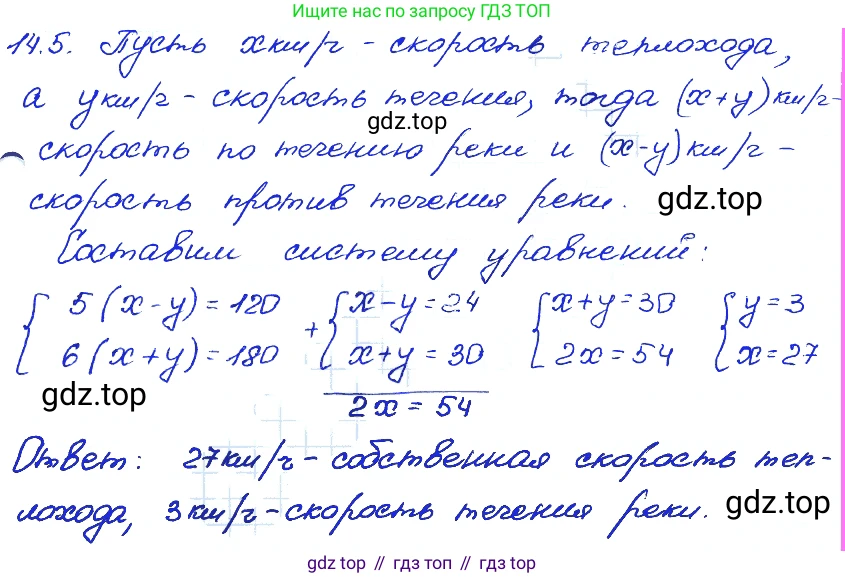 Ищите нас по запросу ГДЗ ТОП
14.5. Пусть x км/ч - скорость теплохода,
а y км/ч - скорость течения, тогда (x+y) км/ч-
gdz.top
скорость по течению реки и (x-y) км/ч -
скорость против течения реки.
gdz.top
Составим систему уравнений:
{ 5(x-y)=120 + { x-y=24 { x+y=30 { y=3
{ 6(x+y)=180 { x+y=30 { 2x=54 { x=27
gdz.top
2x=54
Ответ: 27 км/ч - собственная скорость теп-
лохода, 3 км/ч - скорость течения реки.
gdz.top
gdz.top // гдз топ // gdz top